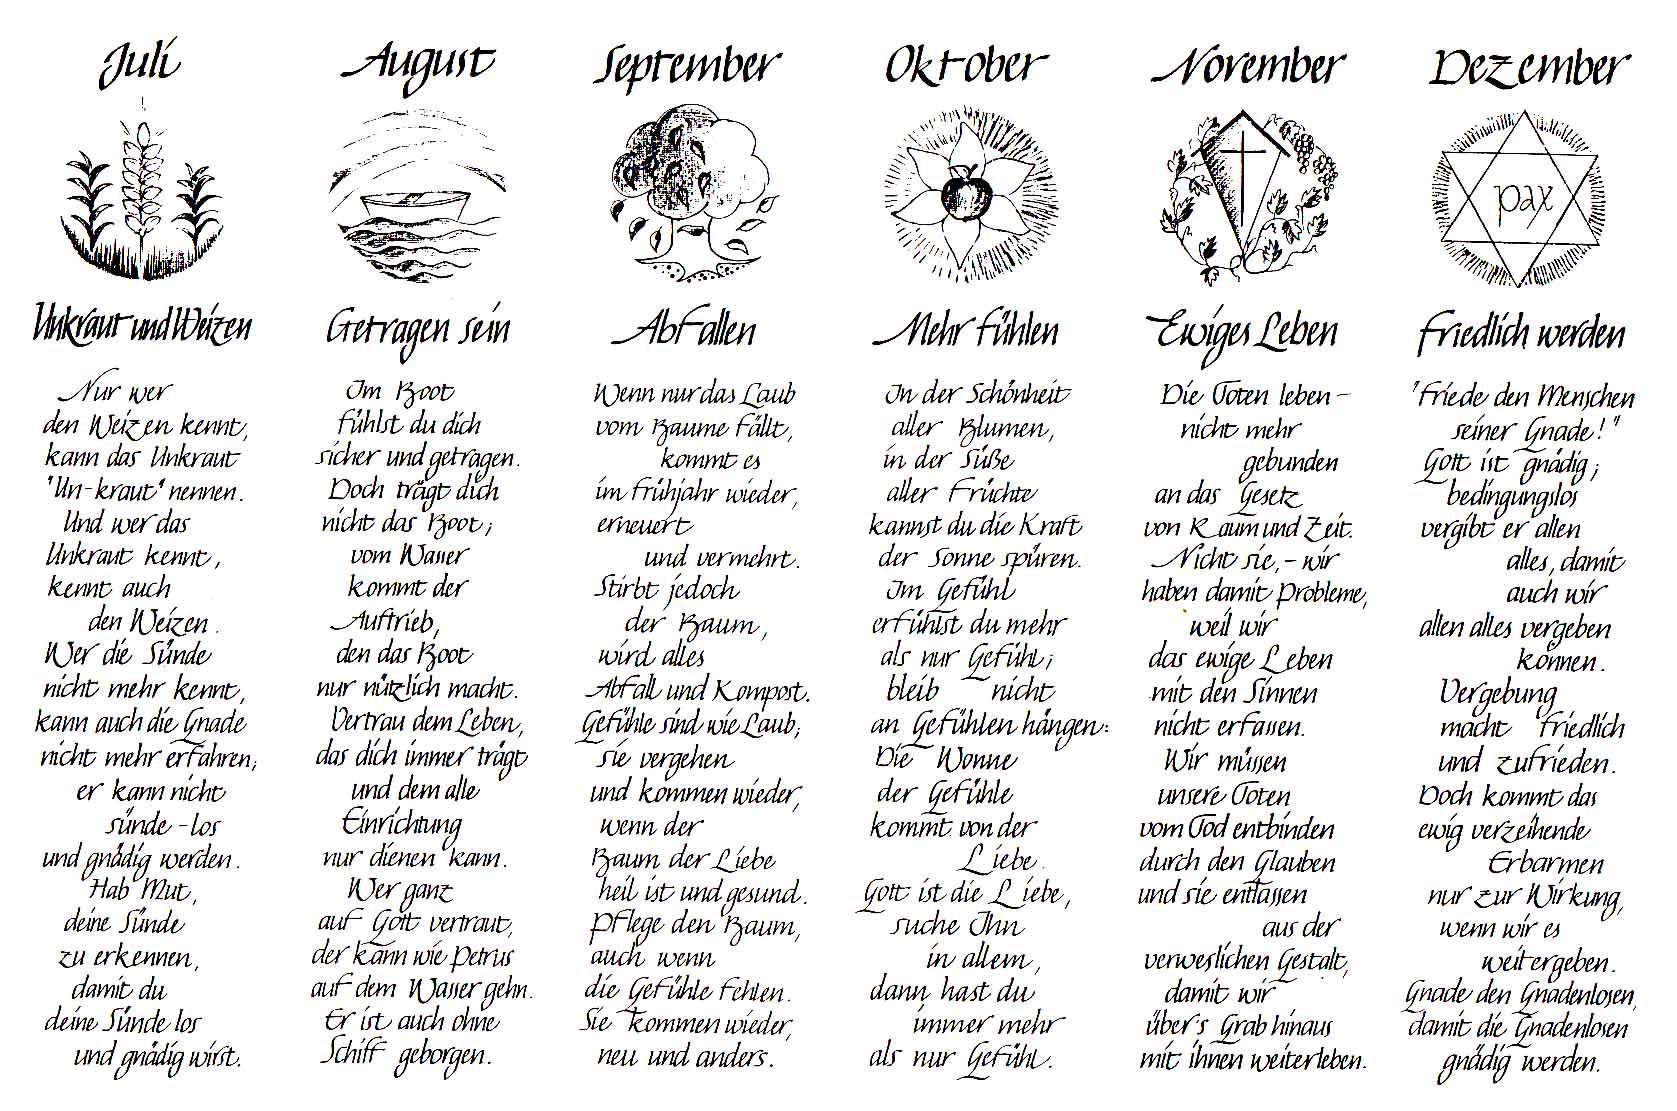 Juli
Unkraut und Weizen
Nur wer
den Weizen kennt,
kann das Unkraut
"Un-kraut" nennen.
Und wer das
Unkraut kennt,
kennt auch
den Weizen.
Wer die Sünde
nicht mehr kennt,
kann auch die Gnade
nicht mehr erfahren;
er kann nicht
sünde-los
und gnädig werden.
Hab Mut,
deine Sünde
zu erkennen,
damit du
deine Sünde los
und gnädig wirst.
August
Getragen sein
Im Boot
fühlst du dich
sicher und getragen.
Doch trägt dich
nicht das Boot;
vom Wasser
kommt der
Auftrieb,
den das Boot
nur nützlich macht.
Vertrau dem Leben,
das dich immer trägt
und dem alle
Einrichtung
nur dienen kann.
Wer ganz
auf Gott vertraut,
der kann wie Petrus
auf dem Wasser gehn.
Er ist auch ohne
Schiff geborgen.
September
Abfallen
Wenn nur das Laub
vom Baume fällt,
kommt es
im Frühjahr wieder,
erneuert
und vermehrt.
Stirbt jedoch
der Baum,
wird alles
Abfall und Kompost.
Gefühle sind wie Laub;
sie vergehen
und kommen wieder,
wenn der
Baum der Liebe
heil ist und gesund.
Pflege den Baum,
auch wenn
die Gefühle fehlen.
Sie kommen wieder,
neu und anders.
Oktober
Mehr fühlen
In der Schönheit
aller Blumen,
in der Süße
aller Früchte
kannst du die Kraft
der Sonne spüren.
Im Gefühl
erfühlst du mehr
als nur Gefühl;
bleib nicht
an Gefühlen hängen:
Die Wonne
der Gefühle
kommt von der
Liebe.
Gott ist die Liebe,
suche Ihn
in allem,
dann hast du
immer mehr
als nur Gefühl.
November
Ewiges Leben
Die Toten leben -
nicht mehr
gebunden
an das Gesetz
von Raum und Zeit.
Nicht sie, - wir
haben damit Probleme,
weil wir
das ewige Leben
mit den Sinnen
nicht erfassen.
Wir müssen
unsere Toten
vom Tod entbinden
durch den Glauben
und sie entlassen
aus der
verweslichen Gestalt,
damit wir
über's Grab hinaus
mit ihnen weiterleben.
Dezember
pax
Friedlich werden
"Friede den Menschen
seiner Gnade!"
Gott ist gnädig;
bedingungslos
vergibt er allen
alles, damit
auch wir
allen alles vergeben
können.
Vergebung
macht friedlich
und zufrieden.
Doch kommt das
ewig verzeihende
Erbarmen
nur zur Wirkung,
wenn wir es
weitergeben.
Gnade den Gnadenlosen,
damit die Gnadenlosen
gnädig werden.